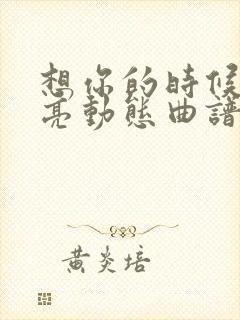 想你的時候
亮動態曲譜
黄炎培